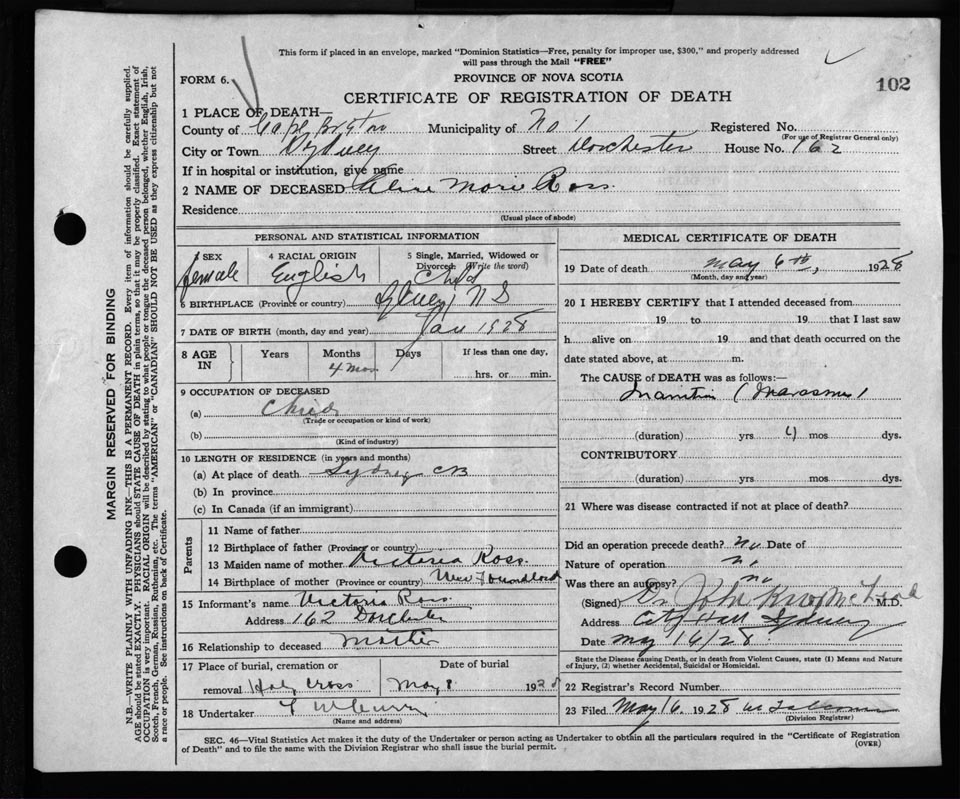 This form if placed in an envelope, marked "Dominion Statistics—Free, penalty for improper use, $300," and properly addressed
will pass through the Mail "FREE"
FORM 6.
PROVINCE OF NOVA SCOTIA
102
CERTIFICATE OF REGISTRATION OF DEATH
1 PLACE OF DEATH—
County of Cape Breton Municipality of No 1 Registered No.
(For use of Registrar General only)
City or Town Sydney Street Dorchester House No. 162
If in hospital or institution, give name
2 NAME OF DECEASED Marie Ross
Residence
(Usual place of abode)
PERSONAL AND STATISTICAL INFORMATION
3 SEX female 4 RACIAL ORIGIN English 5 Single, Married, Widowed or Divorced: (Write the word) Child
6 BIRTHPLACE (Province or country) Sydney N S
7 DATE OF BIRTH (month, day and year) Jan 1928
8 AGE IN Years Months 4 mos Days If less than one day, hrs. or min.
9 OCCUPATION OF DECEASED
(a) Child
(Trade or occupation or kind of work)
(b)
(Kind of industry)
10 LENGTH OF RESIDENCE (in years and months)
(a) At place of death Sydney CB
(b) In province
(c) In Canada (if an immigrant)
Parents
11 Name of father
12 Birthplace of father (Province or country)
13 Maiden name of mother Victoria Ross
14 Birthplace of mother (Province or country) New Foundland
15 Informant's name Victoria Ross
Address 162 Dorchester
16 Relationship to deceased Mother
17 Place of burial, cremation or removal Holy Cross Date of burial May 8 1928
18 Undertaker
(Name and address)
MEDICAL CERTIFICATE OF DEATH
19 Date of death May 6th, 1928
(Month, day and year)
20 I HEREBY CERTIFY that I attended deceased from
19 to 19 that I last saw
h alive on 19 and that death occurred on the
date stated above, at m.
The CAUSE of DEATH was as follows:—
Inanition (Marasmus)
(duration) yrs 4 mos dys.
CONTRIBUTORY
(duration) yrs mos dys.
21 Where was disease contracted if not at place of death?
Did an operation precede death? No Date of
Nature of operation no
Was there an autopsy? no
(Signed) Dr John Knox McLeod M.D.
Address City Hall Sydney
Date May 16/28
State the Disease causing Death, or in death from Violent Causes, state (1) Means and Nature
of Injury, (2) whether Accidental, Suicidal or Homicidal.
22 Registrar's Record Number
23 Filed May 16 1928
(Division Registrar)
SEC. 46—Vital Statistics Act makes it the duty of the Undertaker or person acting as Undertaker to obtain all the particulars required in the "Certificate of Registration
of Death" and to file the same with the Division Registrar who shall issue the burial permit.
(OVER)
MARGIN RESERVED FOR BINDING
N.B.—WRITE PLAINLY WITH UNFADING INK—THIS IS A PERMANENT RECORD. Every item of information should be carefully supplied.
AGE should be stated EXACTLY. PHYSICIANS should STATE CAUSE OF DEATH in plain terms, so that it may be properly classified. Exact statement of
OCCUPATION is very important. RACIAL ORIGIN will be described by stating to what people or tongue the deceased person belonged, whether English, Irish,
Scotch, French, German, Russian, Ruthenian, etc. The terms "AMERICAN" or "CANADIAN" SHOULD NOT BE USED as they express citizenship but not
a race or people. See instructions on back of Certificate.